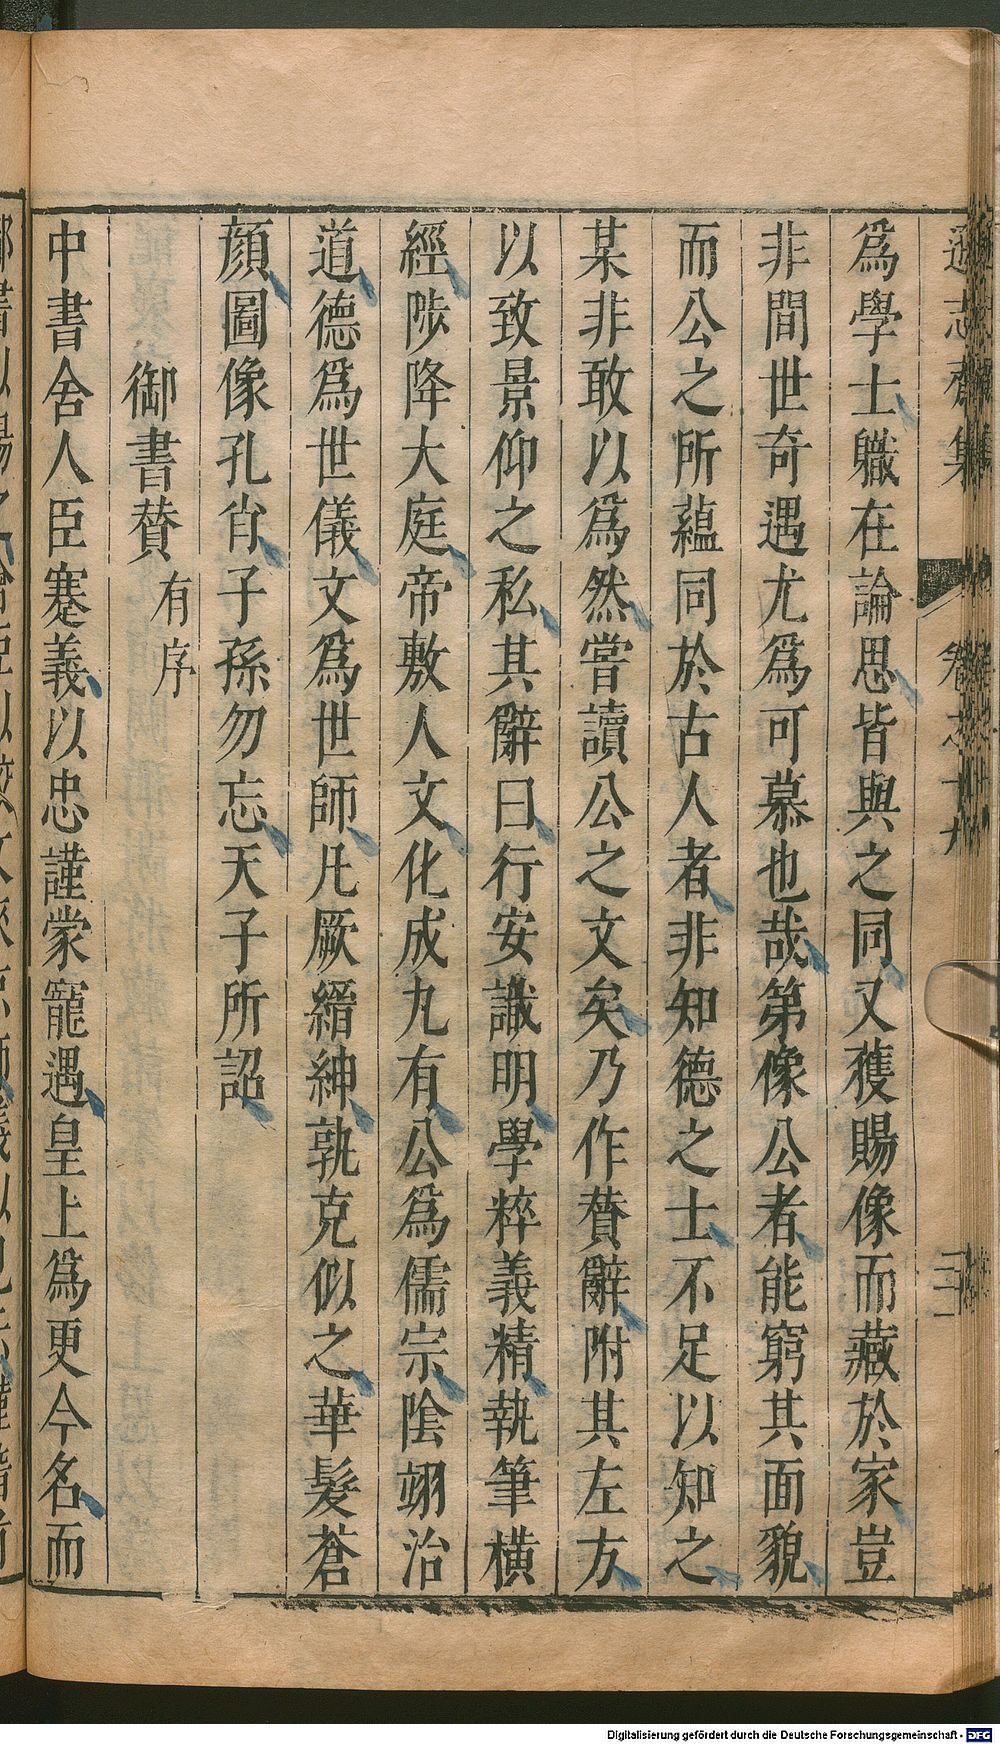 遜志齋集
卷之十九
爲學士職在論思皆與之同又獲賜像而藏於家豈
非間世奇遇尤爲可慕也哉第像公者能窮其面貌
而公之所蘊同於古人者非知德之士不足以知之
某非敢以爲然嘗讀公之文矣乃作贊辭附其左方
以致景仰之私其辭曰行安識明學粹義精執筆橫
經陟降大庭帝敷人文化成九有公爲儒宗陰翊治
道德爲世儀文爲世師凡厥縉紳孰克似之華髮蒼
顔圖像孔肖子孫勿忘天子所詔
御書贊有序
中書舍人臣蹇義以忠謹蒙寵遇皇上爲更今名而
Digitalisierung gefördert durch die Deutsche Forschungsgemeinschaft - DFG